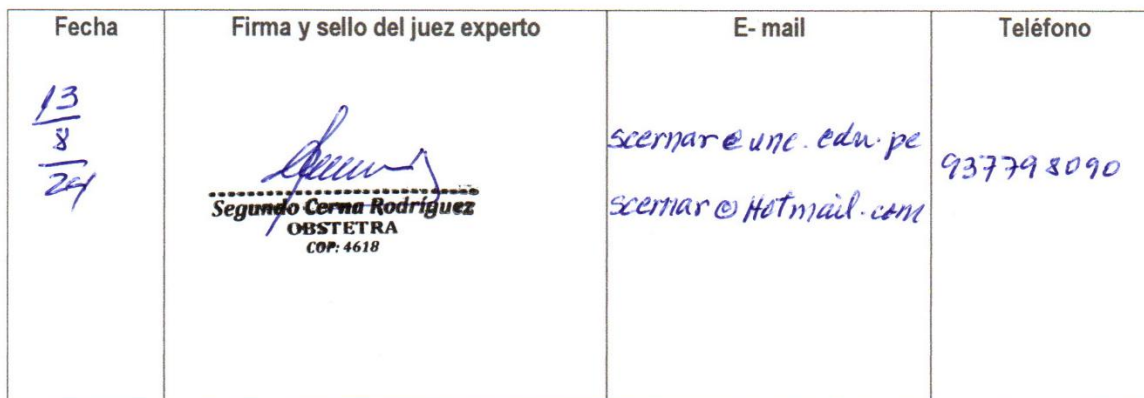 Fecha
Firma y sello del juez experto
E- mail
Teléfono
13
8
24
Segundo Cerna Rodríguez
OBSTETRA
COP: 4618
scernar@unc.edu.pe
scernar@Hotmail.com
937798090